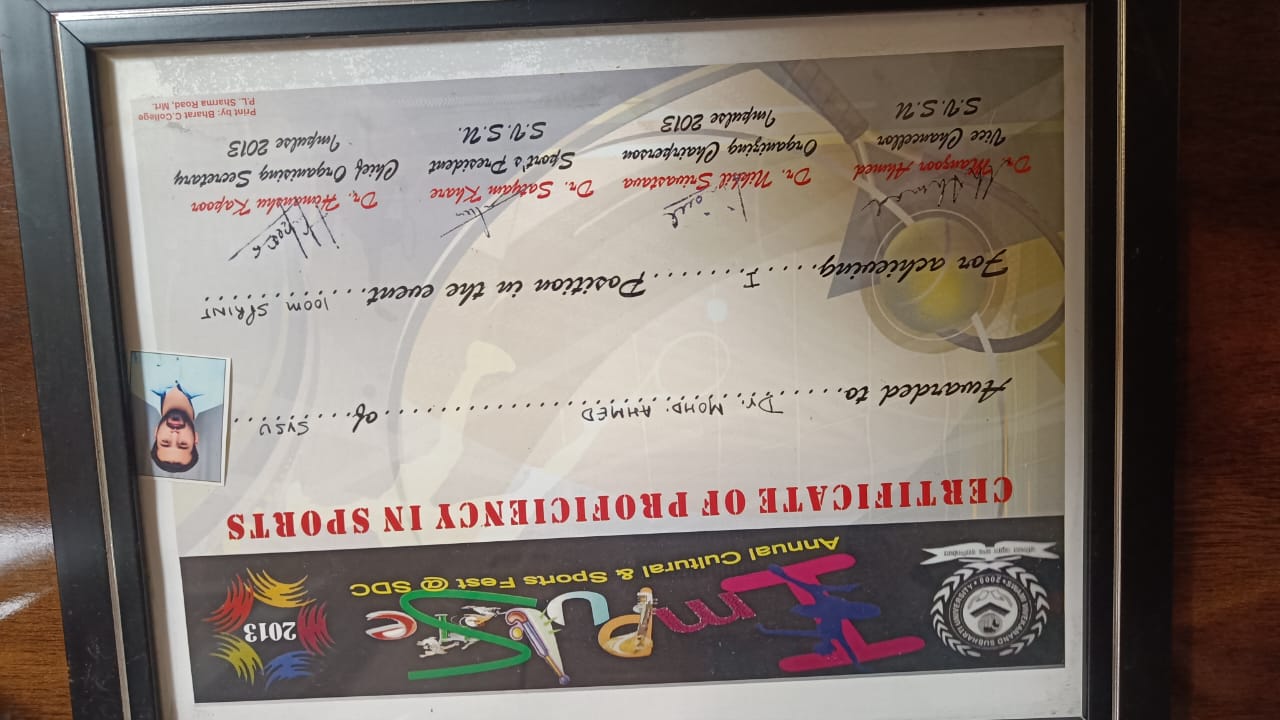 ImpulSe
2013
Annual Cultural & Sports Fest @ SDC
CERTIFICATE OF PROFICIENCY IN SPORTS
Awarded to..... Dr. MOHD. AHMED ..... of ... SVSU ...
For achieving..... I ..... Position in the event..... 100m SPRINT
Dr. Manzoor Ahmed
Vice Chancellor
S.V.S.U
Dr. Nikhil Srivastava
Organizing Chairperson
Impulse 2013
Dr. Satyam Khare
Sport's President
S.V.S.U.
Dr. Himanshu Kapoor
Chief Organising Secretary
Impulse 2013
Print by: Bharat C.College
P.L. Sharma Road, Mrt.